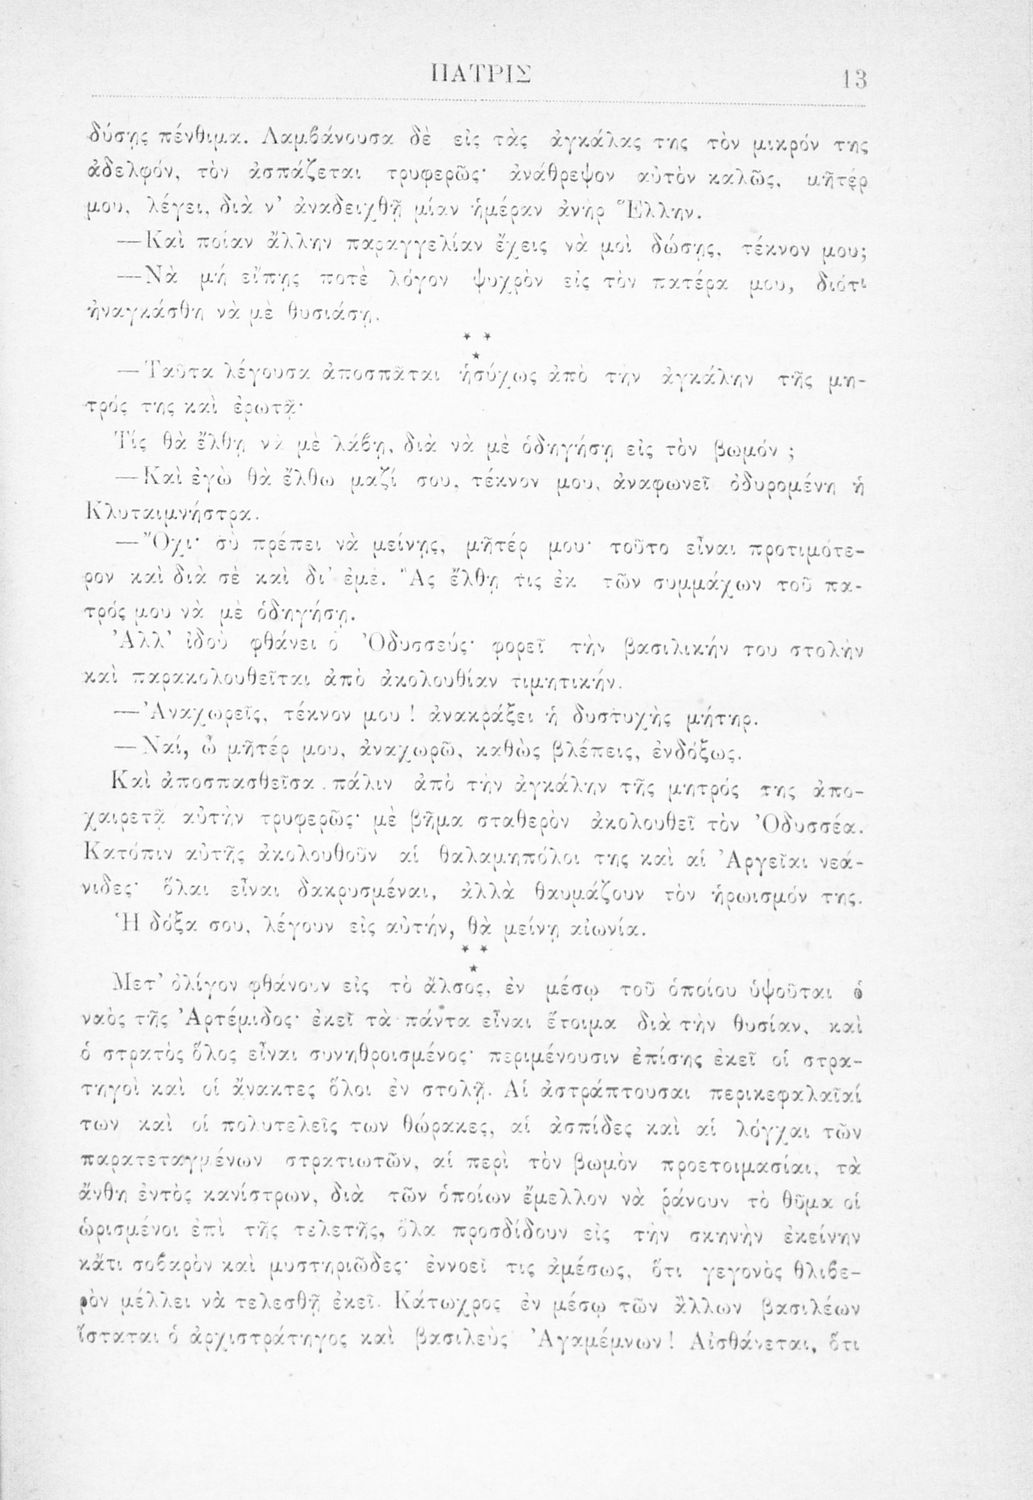 ΠΑΤΡΙΣ 13
δύσῃς πένθιμα. Λαμβάνουσα δὲ εἰς τὰς ἀγκάλας της τὸν μικρόν της
ἀδελφόν, τὸν ἀσπάζεται τρυφερῶς· ἀνάθρεψον αὐτὸν καλῶς, μῆτέρ
μου, λέγει, διὰ ν’ ἀναδειχθῇ μίαν ἡμέραν ἀνὴρ Ἕλλην.
—Καὶ ποίαν ἄλλην παραγγελίαν ἔχεις νὰ μοὶ δώσῃς, τέκνον μου;
—Νὰ μή εἴπῃς ποτὲ λόγον ψυχρὸν εἰς τὸν πατέρα μου, διότι
ἠναγκάσθη νὰ μὲ θυσιάσῃ.
* *
*
—Ταῦτα λέγουσα ἀποσπᾶται ἡσύχως ἀπὸ τὴν ἀγκάλην τῆς μη-
τρός της καὶ ἐρωτᾷ·
Τίς θὰ ἔλθῃ νὰ μὲ λάβῃ, διὰ νὰ μὲ ὁδηγήσῃ εἰς τὸν βωμόν ;
—Καὶ ἐγὼ θὰ ἔλθω μαζί σου, τέκνον μου, ἀναφωνεῖ ὀδυρομένη ἡ
Κλυταιμνήστρα.
—Ὄχι· σὺ πρέπει νὰ μείνῃς, μῆτέρ μου· τοῦτο εἶναι προτιμότε-
ρον καὶ διὰ σὲ καὶ δι’ ἐμέ. Ἂς ἔλθῃ τις ἐκ τῶν συμμάχων τοῦ πα-
τρός μου νὰ μὲ ὁδηγήσῃ.
Ἀλλ’ ἰδοὺ φθάνει ὁ Ὀδυσσεύς· φορεῖ τὴν βασιλικήν του στολὴν
καὶ παρακολουθεῖται ἀπὸ ἀκολουθίαν τιμητικήν.
—Ἀναχωρεῖς, τέκνον μου ! ἀνακράξει ἡ δυστυχὴς μήτηρ.
—Ναί, ὦ μῆτέρ μου, ἀναχωρῶ, καθὼς βλέπεις, ἐνδόξως.
Καὶ ἀποσπασθεῖσα πάλιν ἀπὸ τὴν ἀγκάλην τῆς μητρός της ἀπο-
χαιρετᾷ αὐτὴν τρυφερῶς· μὲ βῆμα σταθερὸν ἀκολουθεῖ τὸν Ὀδυσσέα.
Κατόπιν αὐτῆς ἀκολουθοῦν αἱ θαλαμηπόλοι της καὶ αἱ Ἀργεῖαι νεά-
νιδες· ὅλαι εἶναι δακρυσμέναι, ἀλλὰ θαυμάζουν τὸν ἡρωισμόν της.
Ἡ δόξα σου, λέγουν εἰς αὐτήν, θὰ μείνῃ αἰωνία.
* *
*
Μετ’ ὀλίγον φθάνουν εἰς τὸ ἄλσος, ἐν μέσῳ τοῦ ὁποίου ὑψοῦται ὁ
ναὸς τῆς Ἀρτέμιδος· ἐκεῖ τὰ πάντα εἶναι ἕτοιμα διὰ τὴν θυσίαν, καὶ
ὁ στρατὸς ὅλος εἶναι συνηθροισμένος· περιμένουσιν ἐπίσης ἐκεῖ οἱ στρα-
τηγοὶ καὶ οἱ ἄνακτες ὅλοι ἐν στολῇ. Αἱ ἀστράπτουσαι περικεφαλαῖαί
των καὶ οἱ πολυτελεῖς των θώρακες, αἱ ἀσπίδες καὶ αἱ λόγχαι τῶν
παρατεταγμένων στρατιωτῶν, αἱ περὶ τὸν βωμὸν προετοιμασίαι, τὰ
ἄνθη ἐντὸς κανίστρων, διὰ τῶν ὁποίων ἔμελλον νὰ ῥάνουν τὸ θῦμα οἱ
ὡρισμένοι ἐπὶ τῆς τελετῆς, ὅλα προσδίδουν εἰς τὴν σκηνὴν ἐκείνην
κἄτι σοβαρὸν καὶ μυστηριῶδες· ἐννοεῖ τις ἀμέσως, ὅτι γεγονὸς θλιβε-
ρὸν μέλλει νὰ τελεσθῇ ἐκεῖ. Κάτωχρος ἐν μέσῳ τῶν ἄλλων βασιλέων
ἵσταται ὁ ἀρχιστράτηγος καὶ βασιλεὺς Ἀγαμέμνων ! Αἰσθάνεται, ὅτι